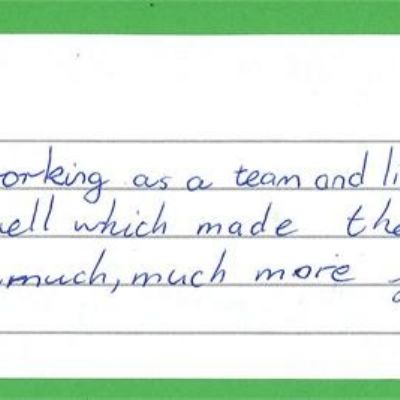 orking as a team and li
ell which made the
much, much more